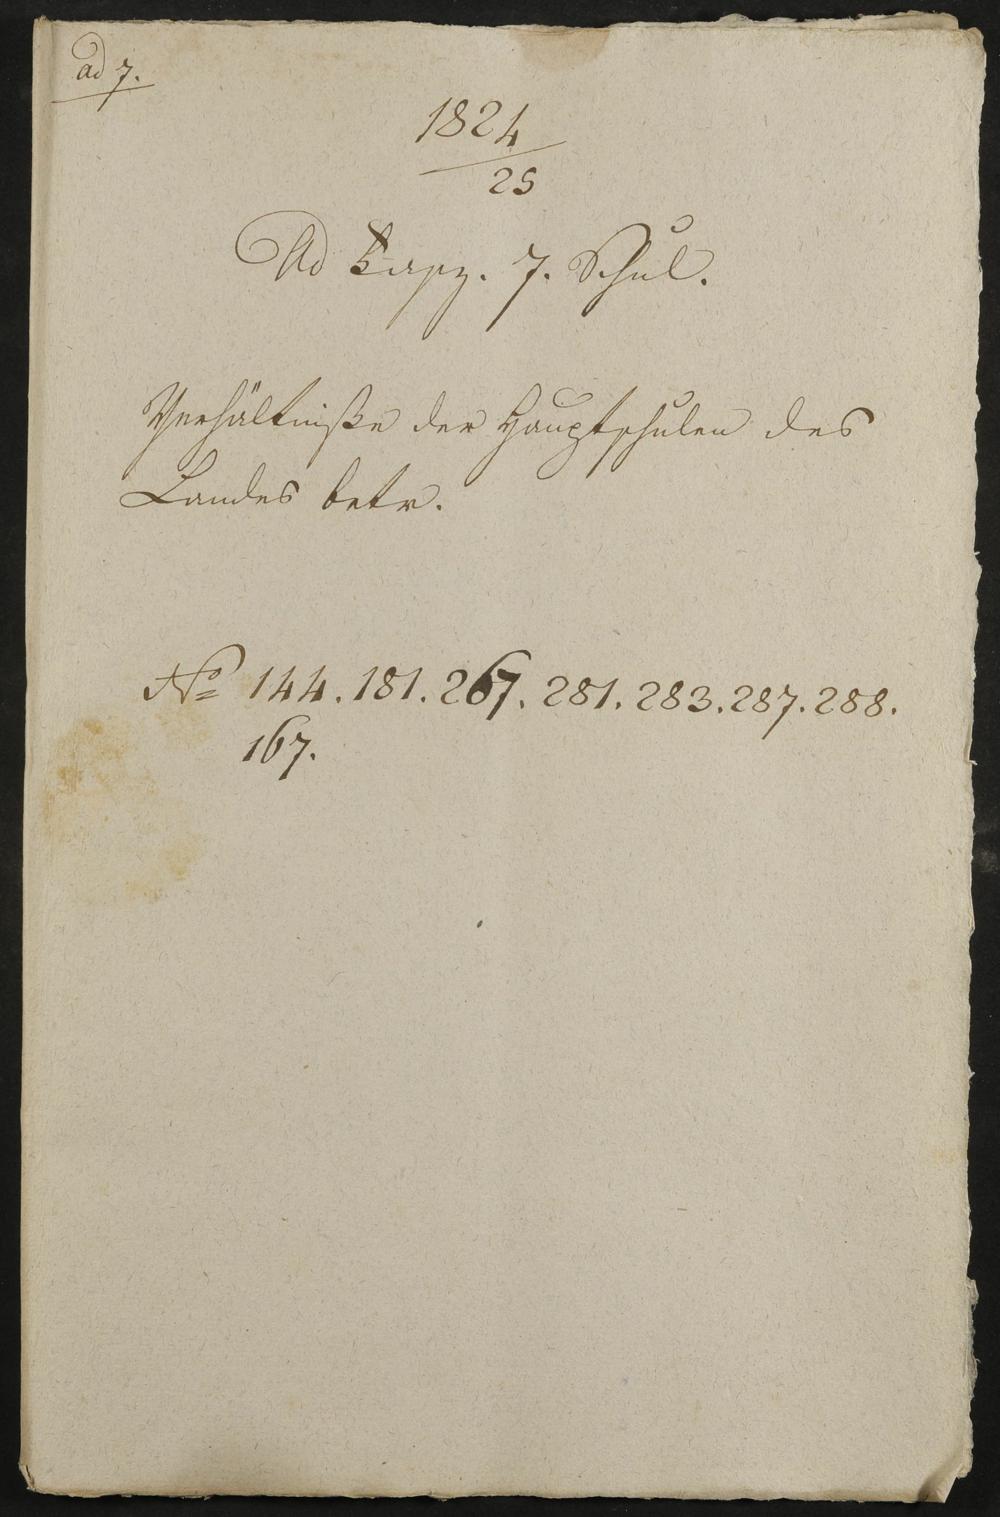 ad 7.
1824
25
Ad Earz. 7. Schul.
Verhältniße der Hauptschulen des
Landes betr.
No 144. 181. 267. 281. 283. 287. 288.
167.